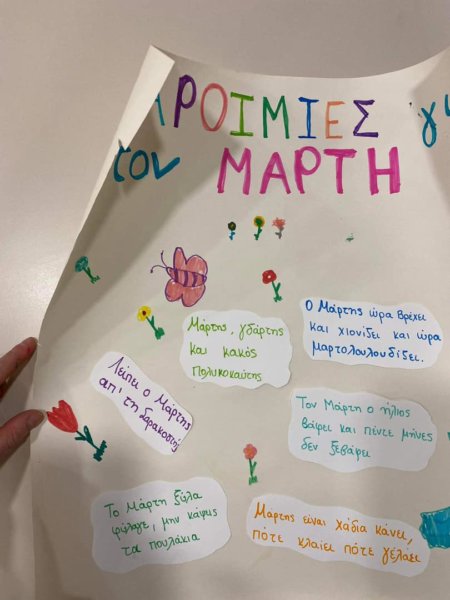 ΑΡΟΙΜΙΕΣ γι
τον ΜΑΡΤΗ
Ο Μάρτης ώρα βρέχει
και χιονίζει και ώρα
μαρτολουλουδίζει.
Μάρτης, γδάρτης
και κακός
πολυκοκαύτης
Λείπει ο Μάρτης
απ' τη Σαρακοστή
Τον Μάρτη ο ήλιος
βάφει και πέντε μήνες
δεν ξεβάφει
Το Μάρτη ξύλα
φύλαγε, μην κάψεις
τα πουλάκια
Μάρτης είναι χάδια κάνει,
πότε κλαίει πότε γέλαει